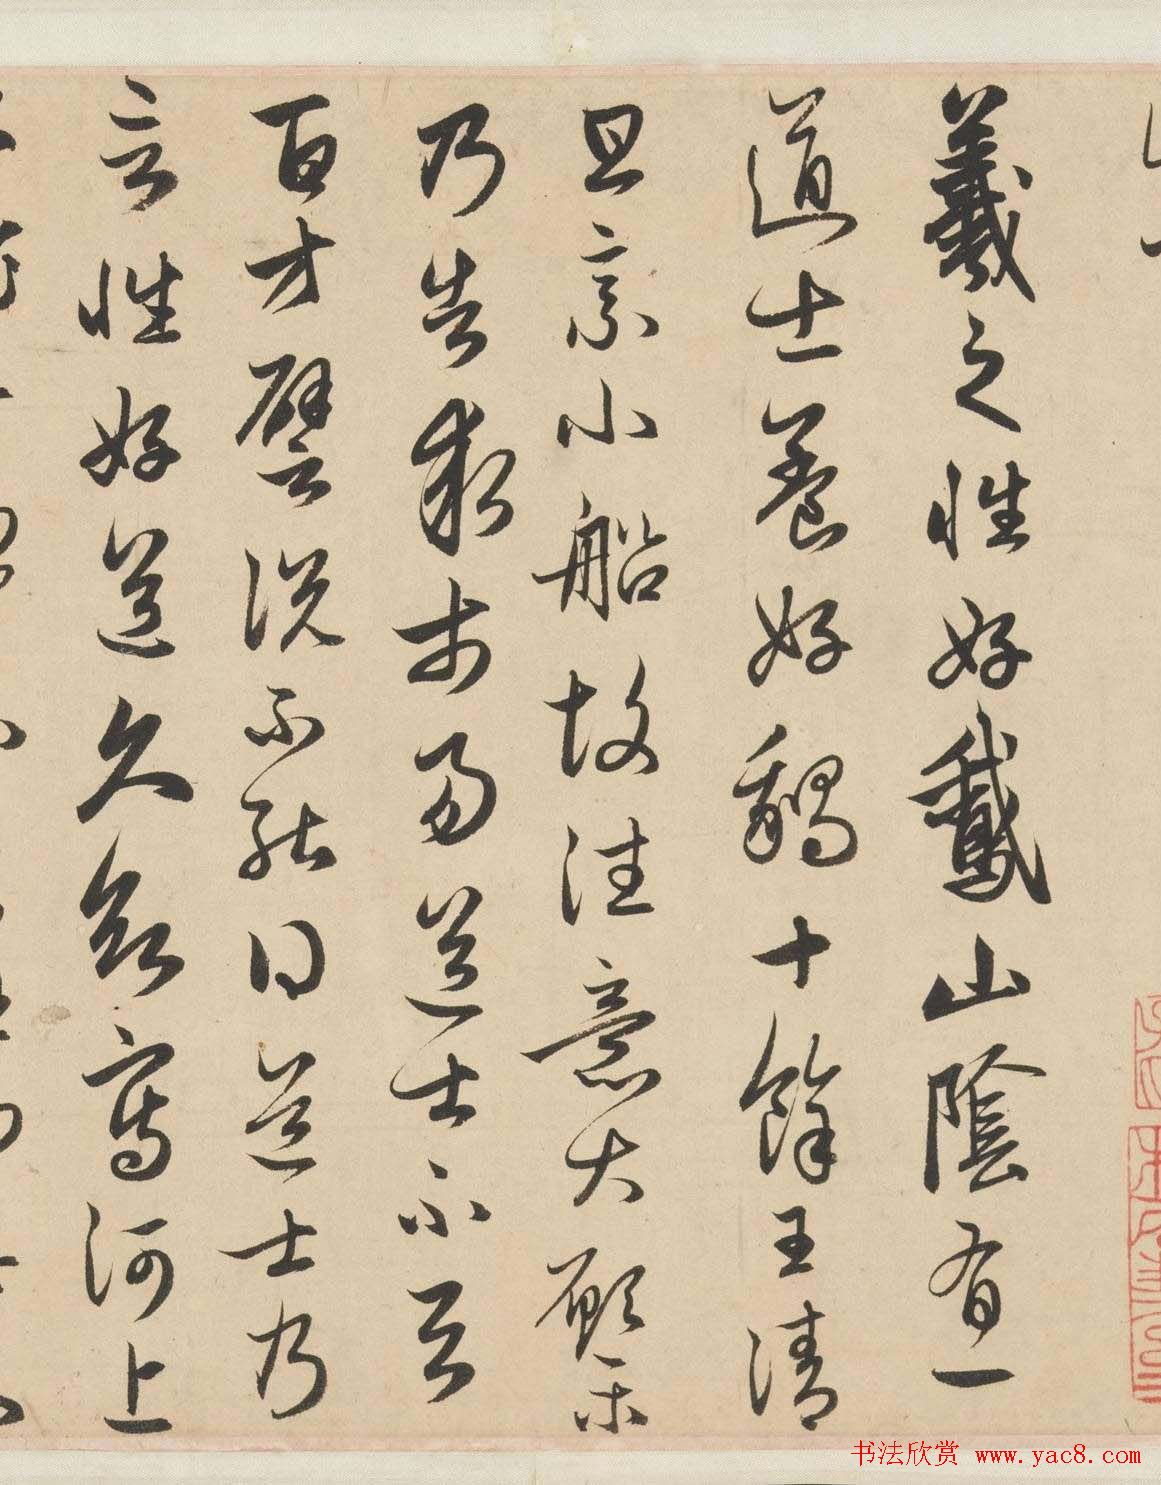 羲之性好鵝山陰有一
道士養好鵝十餘王清
旦乘小船故往意大願樂
乃告求市易道士不云
百方譬說不能得道士乃
言性好道久欲寫河上
书法欣赏 www.yac8.com